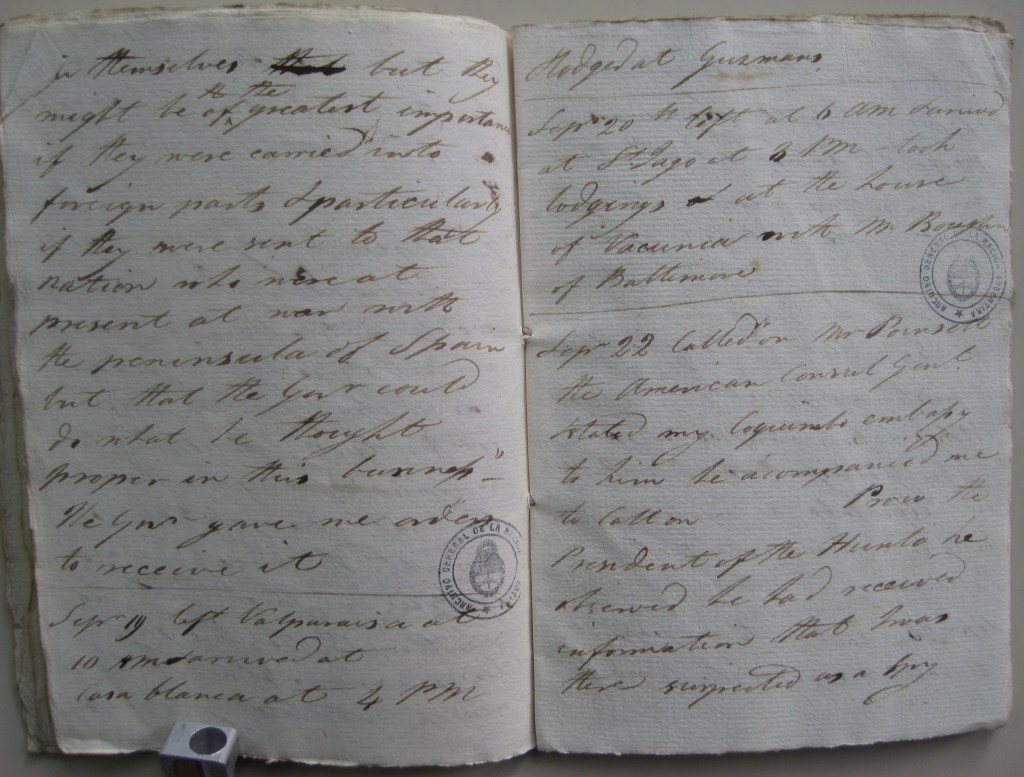 in themselves but they
might be of the greatest importance
if they were carried into
foreign parts & particularly
if they were sent to that
nation who were at
present at war with
the peninsula of Spain
but that the Govr could
do what he thought
proper in this business"
The Govr gave me orders
to receive it
Sepr 19 left Valparaiso at
10 am & arived at
Casa blanca at 4 PM
& lodged at Gusmans
Sepr 20th left at 6 AM & arived
at St Jago at 3 PM took
lodgings at the house
of with Mr
of Baltimore
Sepr 22 Called on Mr Poinsett
the American Consul Genl.
stated my Coquimbo embassy
to him he acompanied me
to Call on Prow the
President of the Hunta he
observed he had received
information that I was
there suspected as a Spy
ARCHIVO GENERAL DE LA NACION ARGENTINA
ARCHIVO GENERAL DE LA NACION ARGENTINA